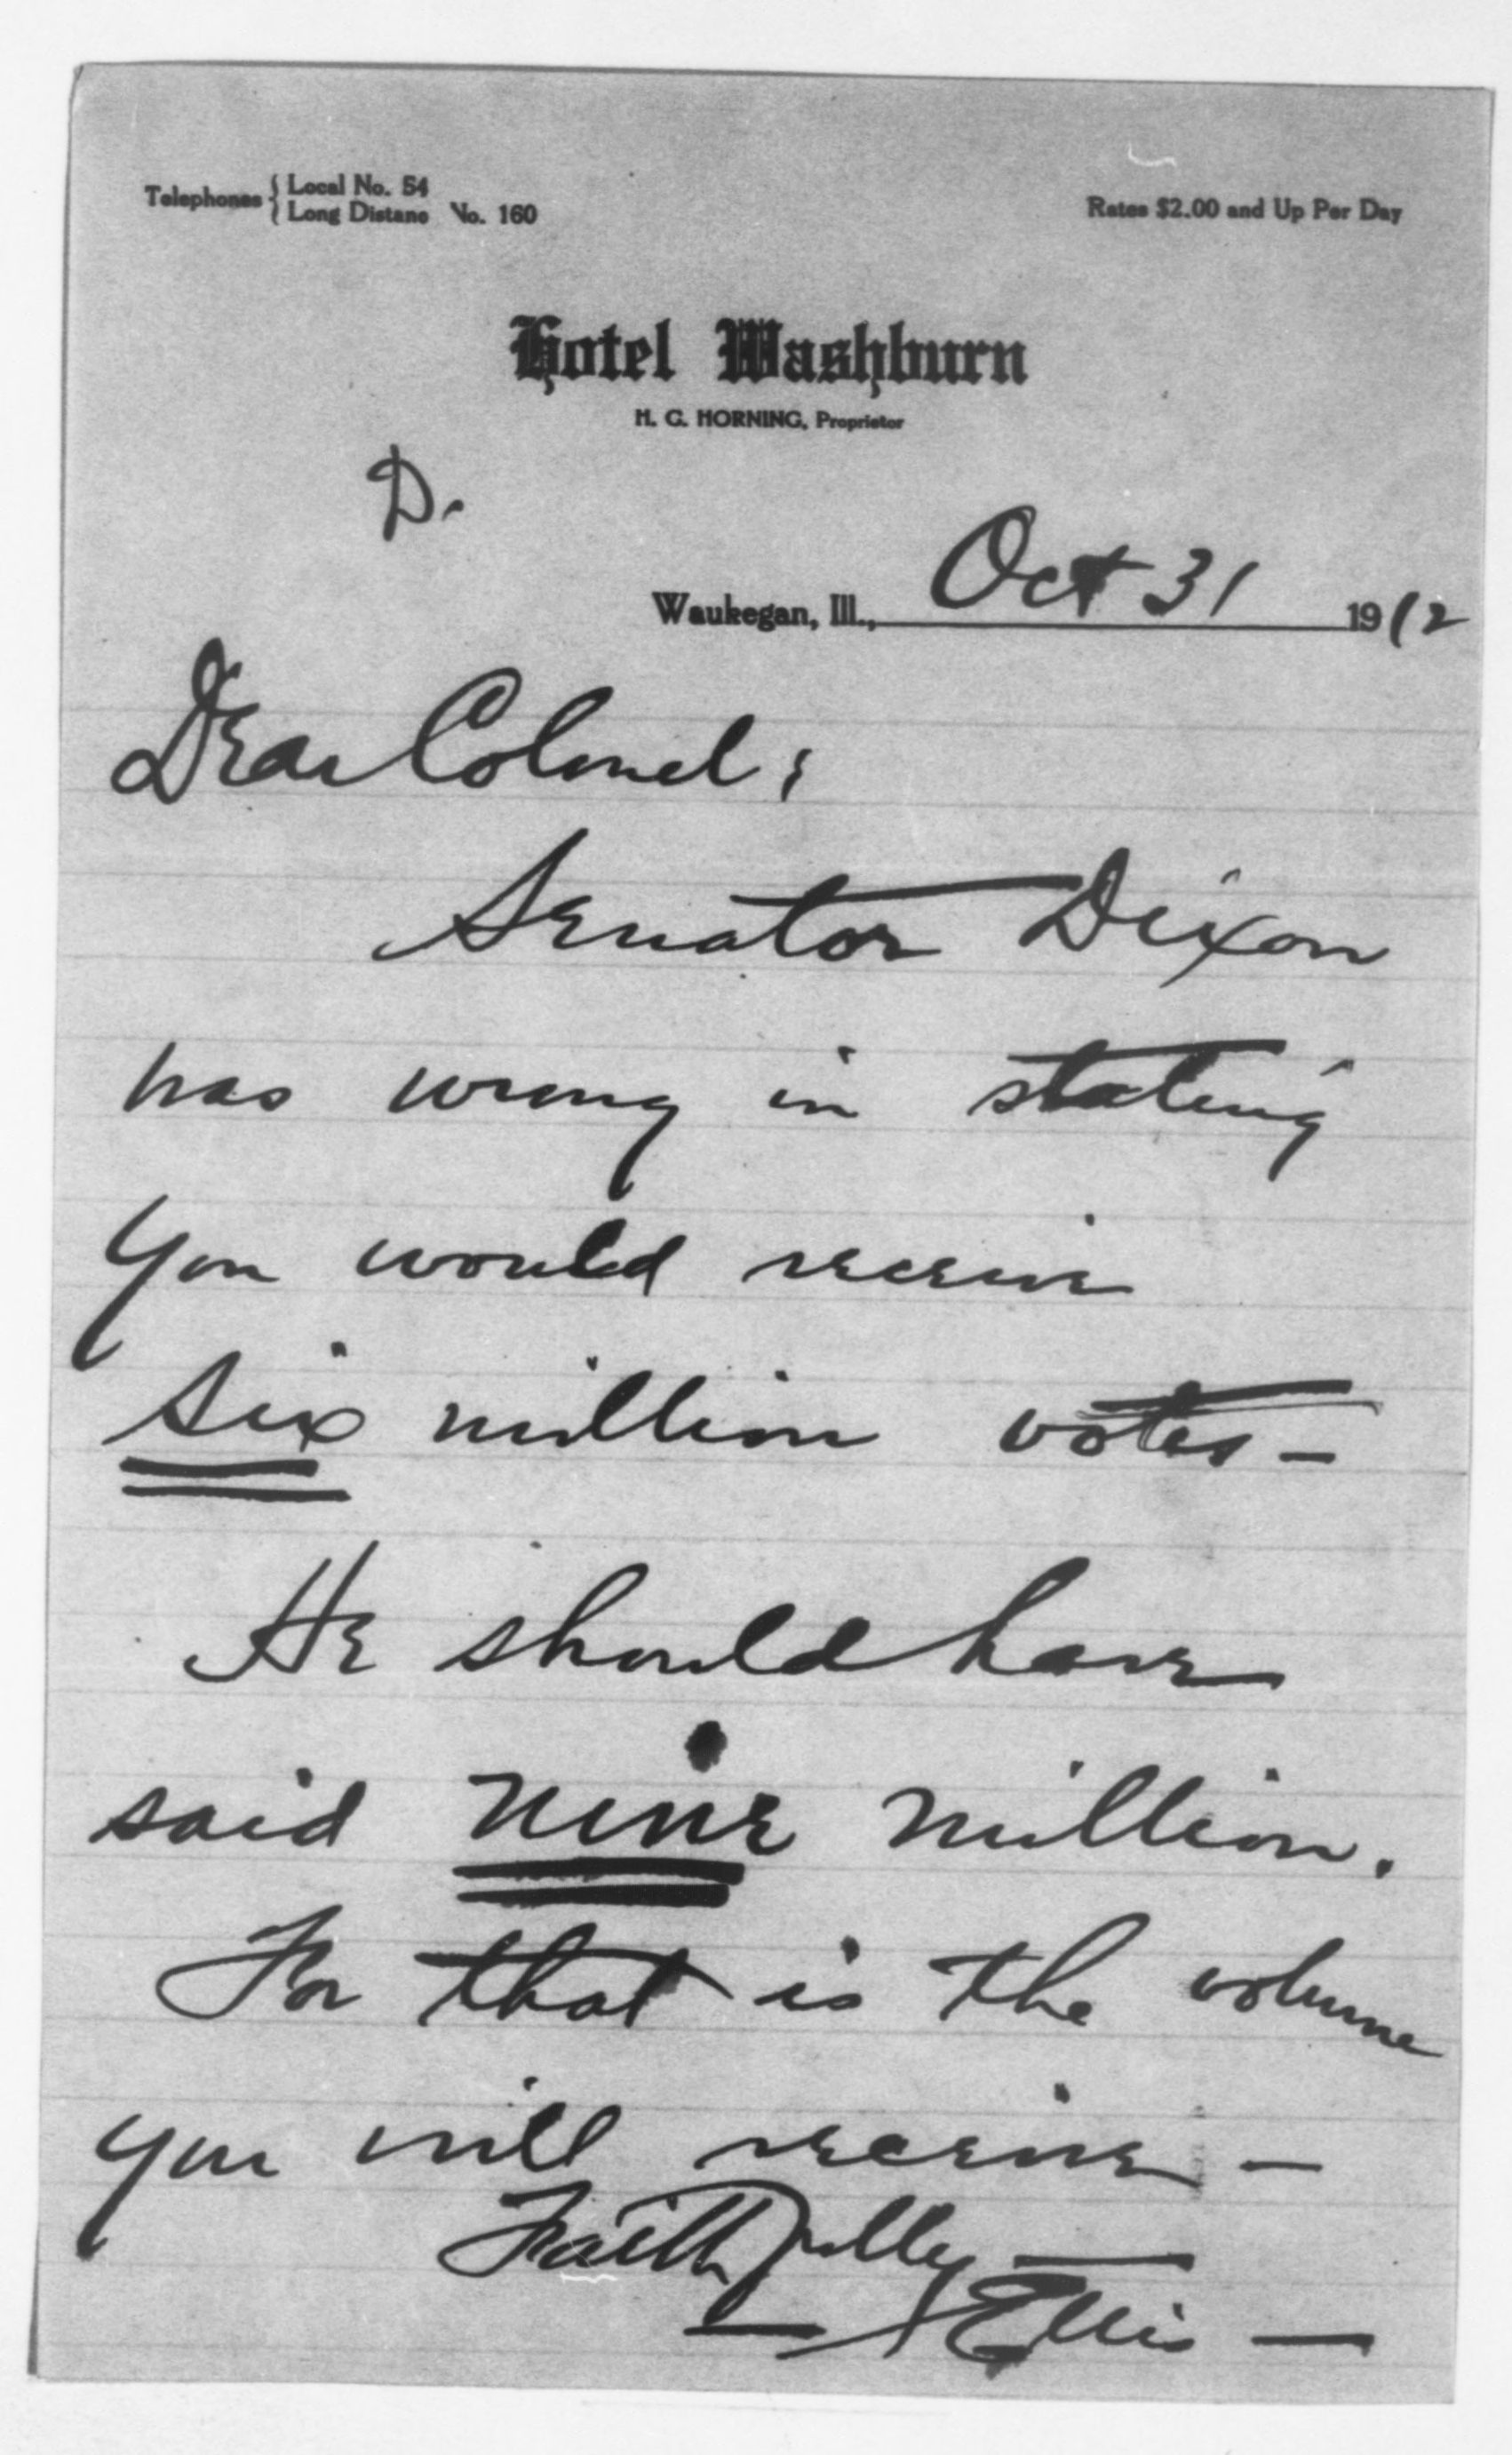 Telephones { Local No. 54
Long Distanc No. 160
Rates $2.00 and Up Per Day
Hotel Washburn
H. G. HORNING, Proprietor
D.
Waukegan, Ill., Oct 31 1912
Dear Colonel:
Senator Dixon
was wrong in stating
you would receive
six million votes -
He should have
said nine million.
For that is the volume
you will receive -
Faithfully -
Ellis -